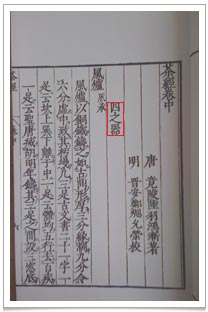 茶經卷中
唐 竟陵陸羽鴻漸著
明 晉安鄭熜允榮校
四之器
風爐 灰承
風爐以銅鐵鑄之如古鼎形厚三分緣闊九分令
六分虛中致其杇墁凡三足古文書二十一字一
足云坎上巽下離于中一足云體均五行去百疾
一足云聖唐滅胡明年鑄其三足之間設三窻底
茶經 卷中